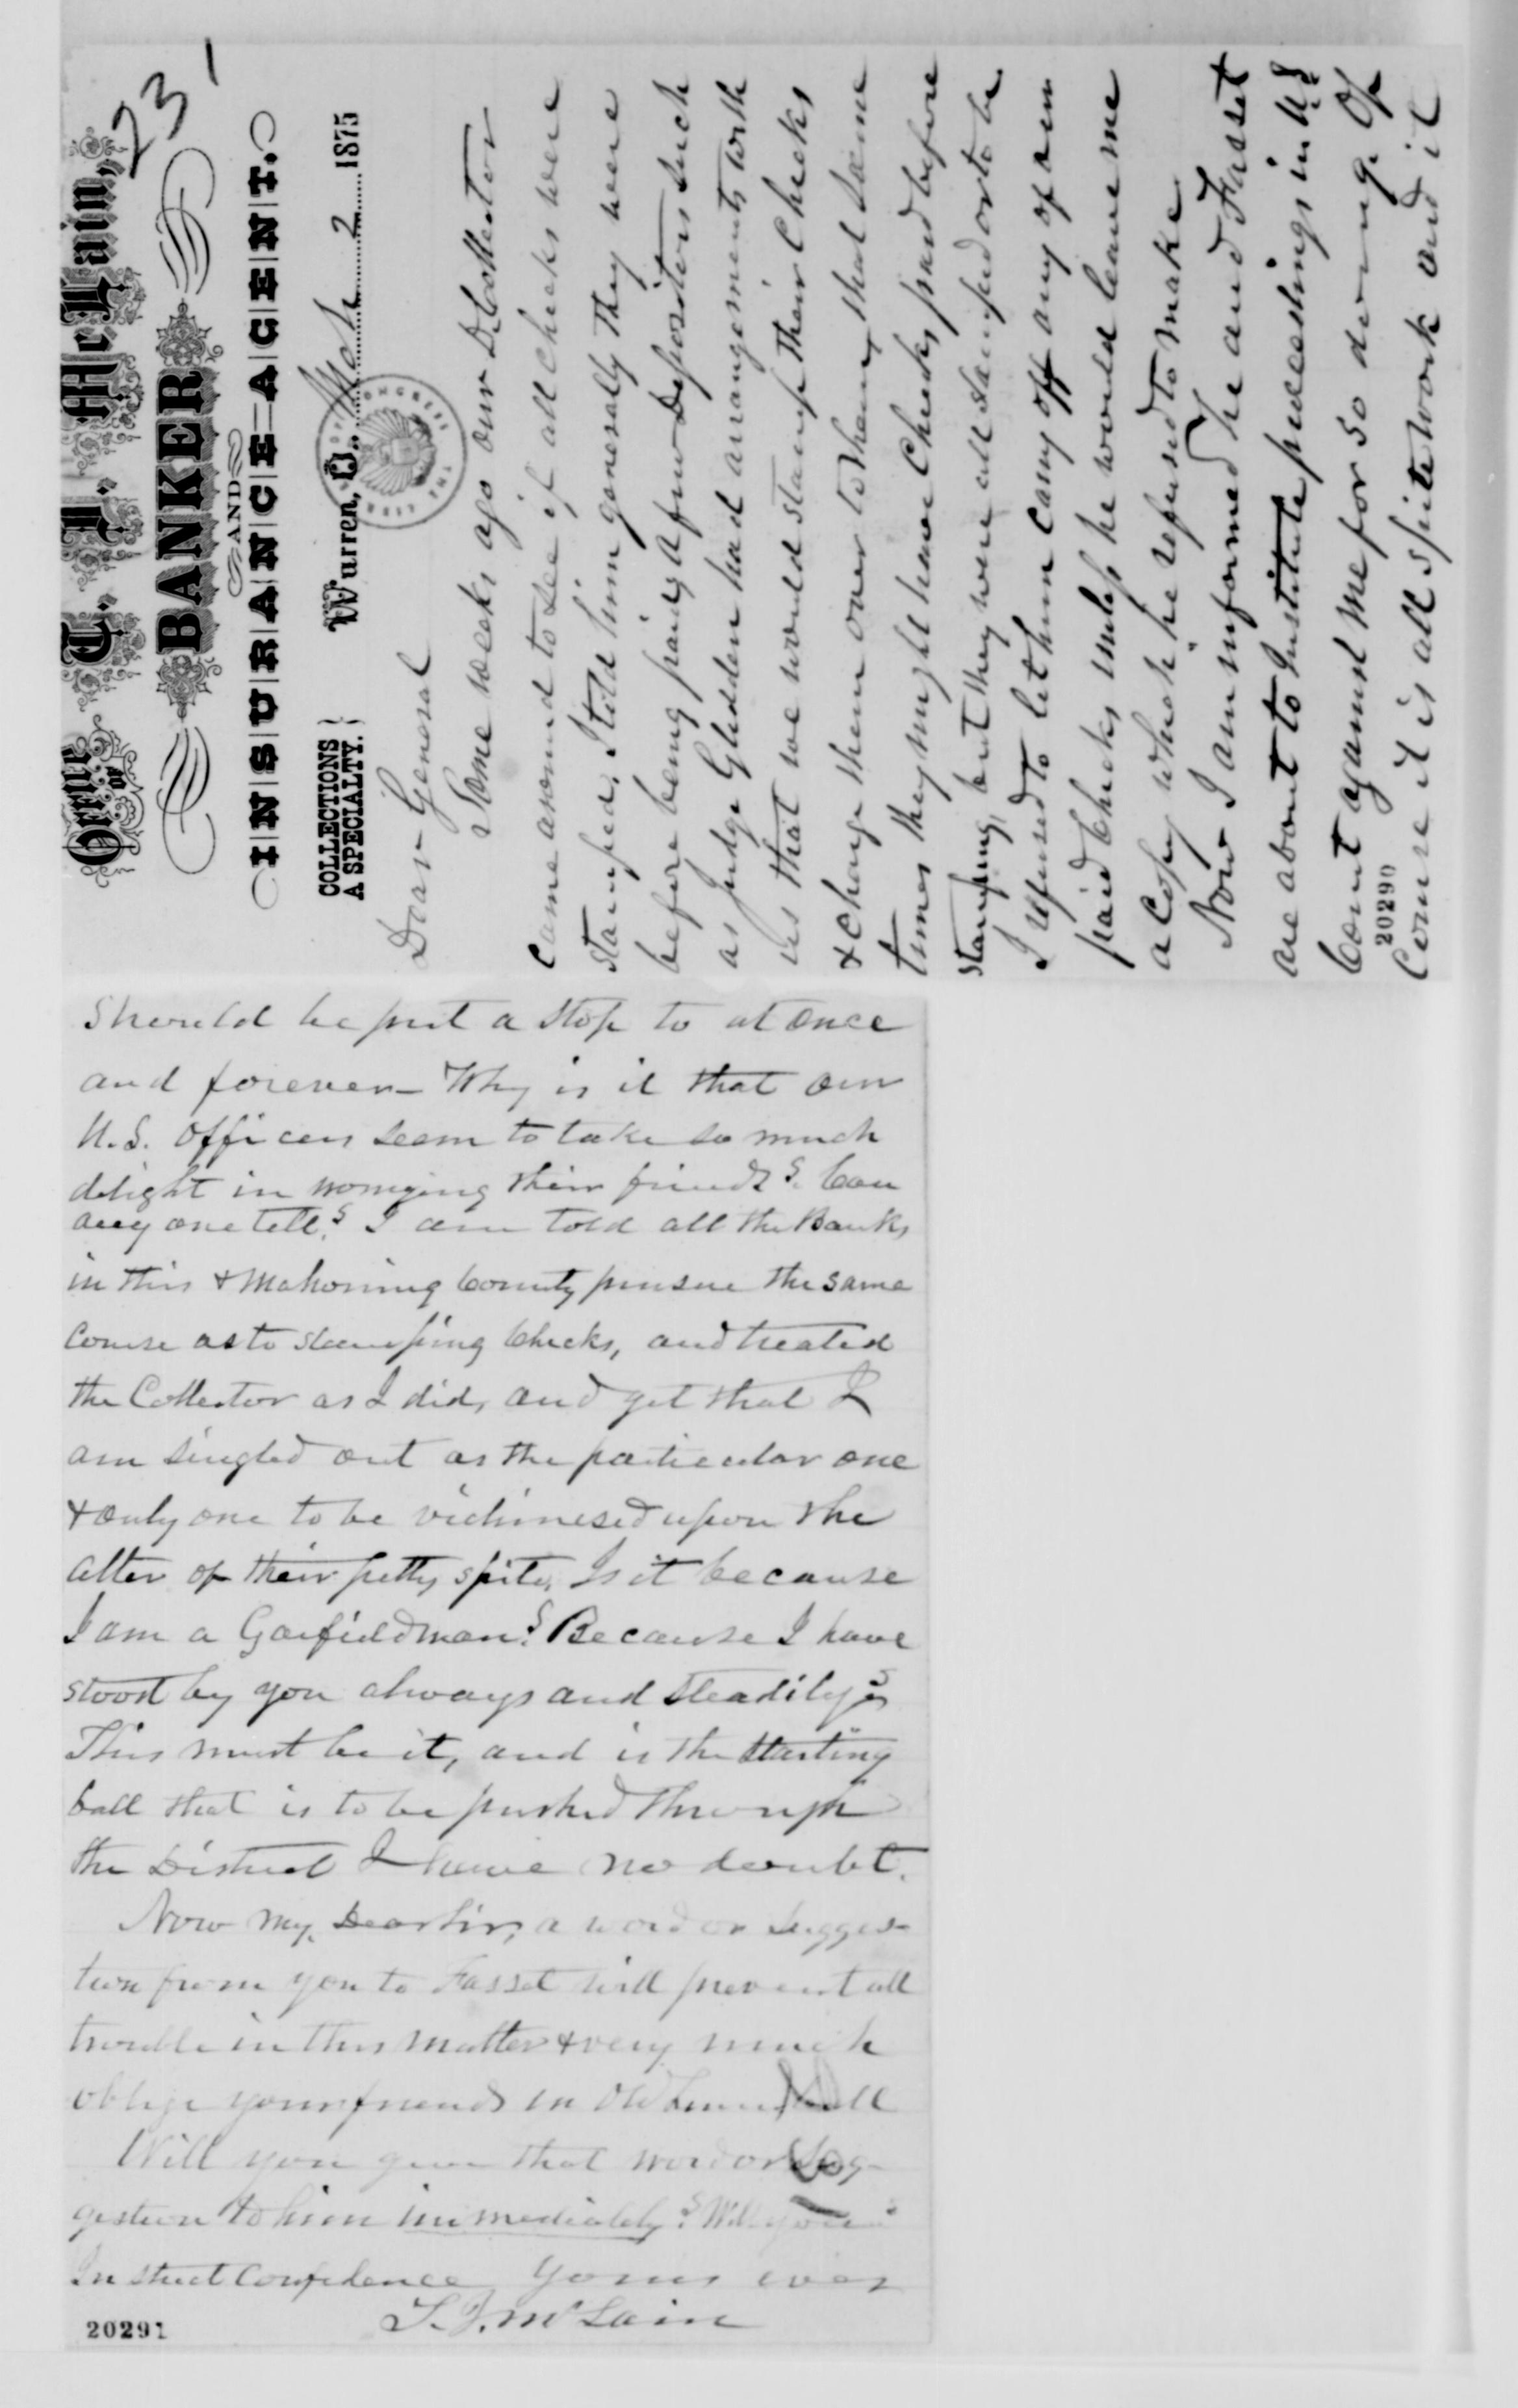 231
Office OF T. J. McLain,
BANKER
AND
INSURANCE AGENT.
COLLECTIONS
A SPECIALTY.
Warren, O. Mch 2 1875
Dear General
Some weeks ago our D. Collector
came around to see if all checks were
stamped, I told him generally they were
before being paid, A few Depositors such
as Judge Glidden had arrangements with
us that we would stamp their Checks
& charge them over to them, that some
times they might have Checks paid before
stamping, but they were all stamped or to be
I refused to let him carry off any of our
paid Checks unless he would leave me
a Copy which he refused to make
Now I am informed he and Fasset
are about to Institute proceedings in U.S
Court against me for so doing. Of
Course it is all spite work and it
20290
Should be put a stop to at once
and forever— Why is it that our
U.S. officers seem to take so much
delight in worrying their friends? Can
any one tell? I am told all the Banks
in this & Mahoning County pursue the same
course as to stamping Checks, and treated
the Collector as I did, and yet that I
am singled out as the particular one
& only one to be victimised upon the
alter of their petty spite, Is it because
I am a Garfield man? Because I have
stood by you always and steadily?
This must be it, and is the starting
ball that is to be pushed through
the District I have no doubt.
Now my Dear Sir, a word or sugges-
tion from you to Fasset will prevent all
trouble in this matter & very much
oblige your friends in Old Trumbull
Will you give that word or sug-
gestion to him immediately? Will you?
In strict Confidence Yours ever
T. J. McLain
20291